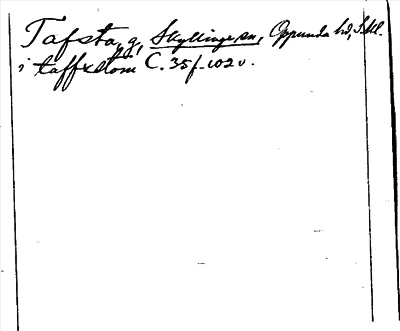 Tafsta, g, Skyllinge sn, Oppunda hd, Sdl.
i taffxstom C. 35 f. 102 v.